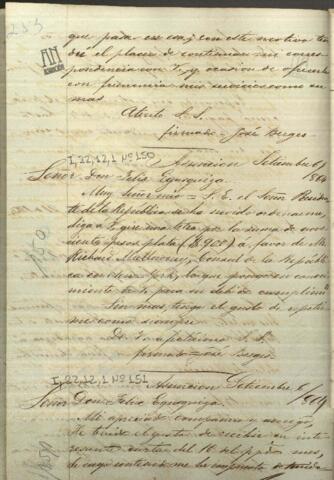 253
AN
que pada en esa; con este motivo ten
dré el placer de continuar mi corres
pondencia con V. y ocasion de ofrecerle
con frecuencia mis servicios como en
mas
Atento S. S.
firmado José Berges
I, 22, 12, 1 Nº 150
Asuncion Setiembre 6/864
Señor Don Felix Egusquiza.
Muy Señor mio = S. E. el Señor Presiden
te de la República se ha servido ordenarme
diga a V. que una letra por la suma de nove
cientos pesos plata ($ 900) á favor de Mr
Richard Mullowney, Consul de la Repúbli
ca en New York, lo que pongo en conoci
miento de V. para su debido cumplimto
Sin mas, tengo el gusto de repetir
me como siempre
De V. apasionado S. S.
firmado José Berges
150
I, 22, 12, 1 Nº 151
Asuncion Setiembre 6/864
Señor Don Felix Egusquiza.
Mi apreciado compatriota y amigo,
He tenido el gusto de recibir su inte
resante carta del 16 del ppdo mes,
de cuyo contenido me he impuesto